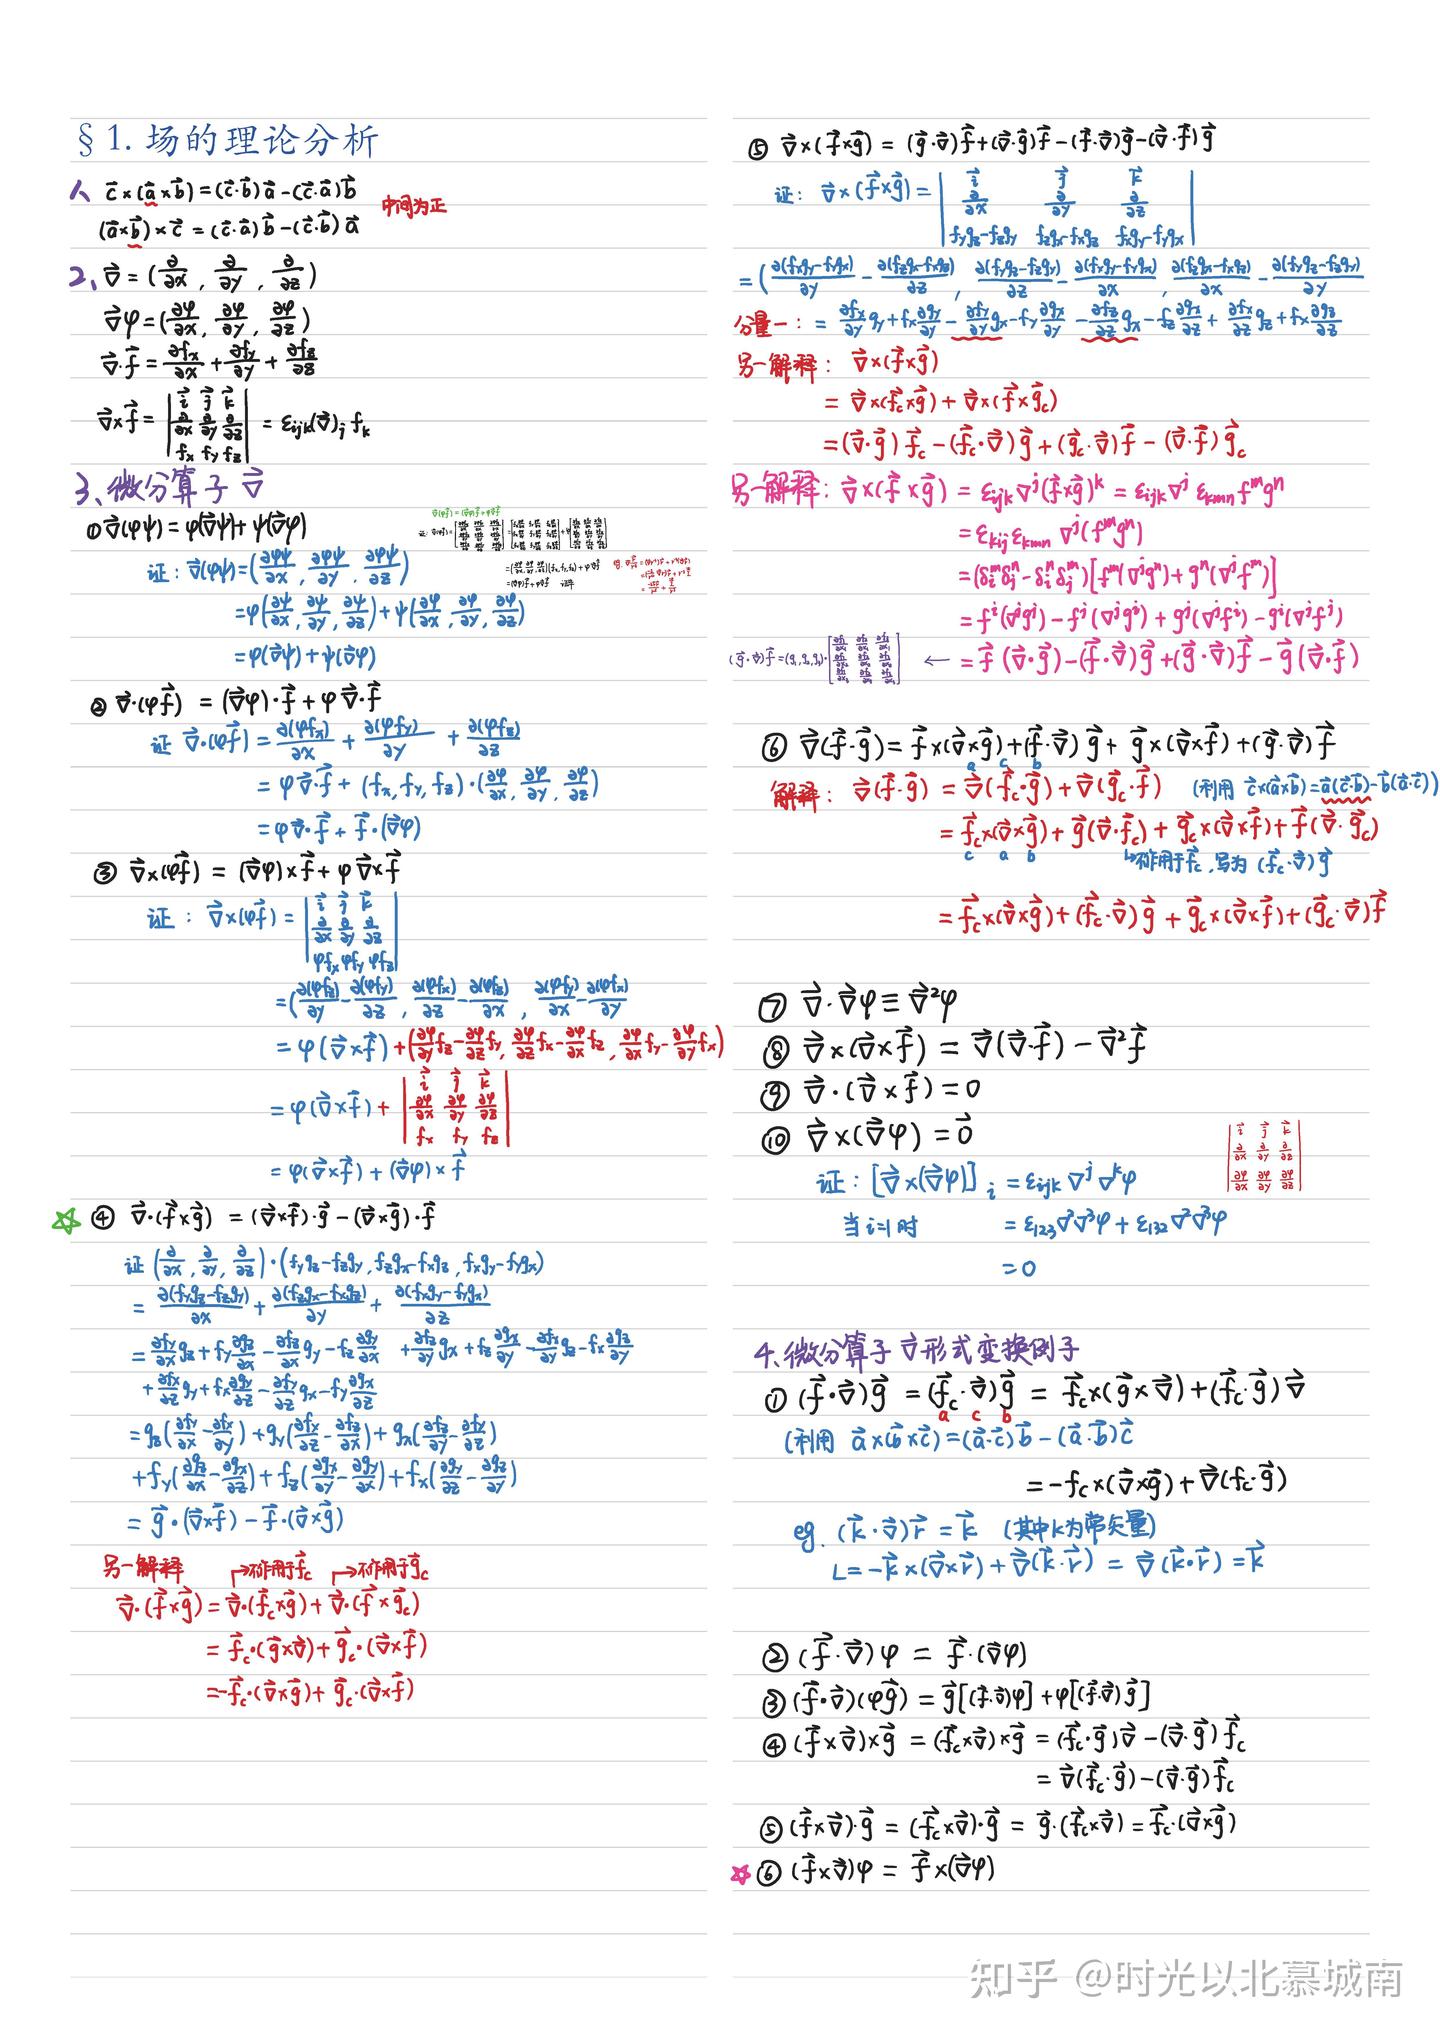 § 1. 场的理论分析
1、 c⃗×(a⃗×b⃗)=(c⃗·b⃗)a⃗-(c⃗·a⃗)b⃗
中间为正
(a⃗×b⃗)×c⃗ = (c⃗·a⃗)b⃗-(c⃗·b⃗)a⃗
2、 ∇⃗ = (∂/∂x, ∂/∂y, ∂/∂z)
∇⃗φ=(∂φ/∂x, ∂φ/∂y, ∂φ/∂z)
∇⃗·f⃗ = ∂fx/∂x + ∂fy/∂y + ∂fz/∂z
∇⃗×f⃗ = | i⃗ j⃗ k⃗ ; ∂/∂x ∂/∂y ∂/∂z ; fx fy fz | = εijk(∇⃗)j fk
3、微分算子 ∇⃗
① ∇⃗(φψ)=φ(∇⃗ψ)+ψ(∇⃗φ)
证: ∇⃗(φψ)=(∂φψ/∂x, ∂φψ/∂y, ∂φψ/∂z)
=φ(∂ψ/∂x, ∂ψ/∂y, ∂ψ/∂z)+ψ(∂φ/∂x, ∂φ/∂y, ∂φ/∂z)
=φ(∇⃗ψ)+ψ(∇⃗φ)
② ∇⃗·(φf⃗) = (∇⃗φ)·f⃗+φ∇⃗·f⃗
证 ∇⃗·(φf⃗) = ∂(φfx)/∂x + ∂(φfy)/∂y + ∂(φfz)/∂z
= φ∇⃗·f⃗ + (fx, fy, fz)·(∂φ/∂x, ∂φ/∂y, ∂φ/∂z)
=φ∇⃗·f⃗ + f⃗·(∇⃗φ)
③ ∇⃗×(φf⃗) = (∇⃗φ)×f⃗+φ∇⃗×f⃗
证: ∇⃗×(φf⃗) = | i⃗ j⃗ k⃗ ; ∂/∂x ∂/∂y ∂/∂z ; φfx φfy φfz |
=(∂(φfz)/∂y-∂(φfy)/∂z, ∂(φfx)/∂z-∂(φfz)/∂x, ∂(φfy)/∂x-∂(φfx)/∂y
= φ(∇⃗×f⃗)+(∂φ/∂y fz-∂φ/∂z fy, ∂φ/∂z fx-∂φ/∂x fz, ∂φ/∂x fy-∂φ/∂y fx)
=φ(∇⃗×f⃗)+ | i⃗ j⃗ k⃗ ; ∂φ/∂x ∂φ/∂y ∂φ/∂z ; fx fy fz |
=φ(∇⃗×f⃗)+(∇⃗φ)×f⃗
④ ∇⃗·(f⃗×g⃗) = (∇⃗×f⃗)·g⃗-(∇⃗×g⃗)·f⃗
证 (∂/∂x, ∂/∂y, ∂/∂z)·(fygz-fzgy, fzgx-fxgz, fxgy-fygx)
= ∂(fygz-fzgy)/∂x + ∂(fzgx-fxgz)/∂y + ∂(fxgy-fygx)/∂z
= ∂fy/∂x gz+fy ∂gz/∂x - ∂fz/∂x gy-fz ∂gy/∂x + ∂fz/∂y gx+fz ∂gx/∂y - ∂fx/∂y gz-fx ∂gz/∂y
+∂fx/∂z gy+fx ∂gy/∂z - ∂fy/∂z gx-fy ∂gx/∂z
=gz(∂fy/∂x-∂fx/∂y)+gy(∂fx/∂z-∂fz/∂x)+gx(∂fz/∂y-∂fy/∂z)
+fy(∂gz/∂x-∂gx/∂z)+fz(∂gx/∂y-∂gy/∂x)+fx(∂gy/∂z-∂gz/∂y)
= g⃗·(∇⃗×f⃗)-f⃗·(∇⃗×g⃗)
另一解释 →不作用于f⃗c →不作用于g⃗c
∇⃗·(f⃗×g⃗)=∇⃗·(f⃗c×g⃗)+∇⃗·(f⃗×g⃗c)
= f⃗c·(g⃗×∇⃗)+g⃗c·(∇⃗×f⃗)
=-f⃗c·(∇⃗×g⃗)+g⃗c·(∇⃗×f⃗)
⑤ ∇⃗×(f⃗×g⃗) = (g⃗·∇⃗)f⃗+(∇⃗·g⃗)f⃗-(f⃗·∇⃗)g⃗-(∇⃗·f⃗)g⃗
证: ∇⃗×(f⃗×g⃗)= | i⃗ j⃗ k⃗ ; ∂/∂x ∂/∂y ∂/∂z ; fygz-fzgy fzgx-fxgz fxgy-fygx |
=(∂(fxgy-fygx)/∂y - ∂(fzgx-fxgz)/∂z, ∂(fygz-fzgy)/∂z - ∂(fxgy-fygx)/∂x, ∂(fzgx-fxgz)/∂x - ∂(fygz-fzgy)/∂y
分量一: = ∂fx/∂y gy+fx ∂gy/∂y - ∂fy/∂y gx-fy ∂gx/∂y - ∂fz/∂z gx-fz ∂gx/∂z + ∂fx/∂z gz+fx ∂gz/∂z
另一解释: ∇⃗×(f⃗×g⃗)
= ∇⃗×(f⃗c×g⃗)+∇⃗×(f⃗×g⃗c)
=(∇⃗·g⃗)f⃗c-(f⃗c·∇⃗)g⃗+(g⃗c·∇⃗)f⃗-(∇⃗·f⃗)g⃗c
另一解释: ∇⃗×(f⃗×g⃗) = εijk∇j(f⃗×g⃗)k = εijk∇j εkmn fmgn
= εkij εkmn ∇j(fmgn)
=(δimδjn-δinδjm)[fm(∇jgn)+gn(∇jfm)]
= fi(∇jgj)-fj(∇jgi)+gj(∇jfi)-gi(∇jfj)
← = f⃗(∇⃗·g⃗)-(f⃗·∇⃗)g⃗+(g⃗·∇⃗)f⃗-g⃗(∇⃗·f⃗)
⑥ ∇⃗(f⃗·g⃗)=f⃗×(∇⃗×g⃗)+(f⃗·∇⃗)g⃗+g⃗×(∇⃗×f⃗)+(g⃗·∇⃗)f⃗
a c b
解释: ∇⃗(f⃗·g⃗) = ∇⃗(f⃗c·g⃗)+∇⃗(g⃗c·f⃗) (利用 c⃗×(a⃗×b⃗)=a⃗(c⃗·b⃗)-b⃗(a⃗·c⃗))
= f⃗c×(∇⃗×g⃗)+g⃗(∇⃗·f⃗c)+g⃗c×(∇⃗×f⃗)+f⃗(∇⃗·g⃗c)
c a b ↳不作用于f⃗c,写为 (f⃗c·∇⃗)g⃗
= f⃗c×(∇⃗×g⃗)+(f⃗c·∇⃗)g⃗+g⃗c×(∇⃗×f⃗)+(g⃗c·∇⃗)f⃗
⑦ ∇⃗·∇⃗φ≡∇⃗²φ
⑧ ∇⃗×(∇⃗×f⃗) = ∇⃗(∇⃗·f⃗)-∇⃗²f⃗
⑨ ∇⃗·(∇⃗×f⃗)=0
⑩ ∇⃗×(∇⃗φ)=0⃗
| i⃗ j⃗ k⃗ ; ∂/∂x ∂/∂y ∂/∂z ; ∂φ/∂x ∂φ/∂y ∂φ/∂z |
证: [∇⃗×(∇⃗φ)]i = εijk∇j∇kφ
当i=1时 = ε123∇²∇³φ+ε132∇²∇³φ
=0
4、微分算子∇⃗形式变换例子
① (f⃗·∇⃗)g⃗ = (f⃗c·∇⃗)g⃗ = f⃗c×(g⃗×∇⃗)+(f⃗c·g⃗)∇⃗
a c b
(利用 a⃗×(b⃗×c⃗)=(a⃗·c⃗)b⃗-(a⃗·b⃗)c⃗
=-fc×(∇⃗×g⃗)+∇⃗(fc·g⃗)
eg. (k⃗·∇⃗)r⃗ = k⃗ (其中k为常矢量)
L=-k⃗×(∇⃗×r⃗)+∇⃗(k⃗·r⃗) = ∇⃗(k⃗·r⃗)=k⃗
② (f⃗·∇⃗)φ = f⃗·(∇⃗φ)
③ (f⃗·∇⃗)(φg⃗) = g⃗[(f⃗·∇⃗)φ]+φ[(f⃗·∇⃗)g⃗]
④ (f⃗×∇⃗)×g⃗ = (f⃗c×∇⃗)×g⃗ = (f⃗c·g⃗)∇⃗-(∇⃗·g⃗)f⃗c
= ∇⃗(f⃗c·g⃗)-(∇⃗·g⃗)f⃗c
⑤ (f⃗×∇⃗)·g⃗ = (f⃗c×∇⃗)·g⃗ = g⃗·(f⃗c×∇⃗)=f⃗c·(∇⃗×g⃗)
⑥ (f⃗×∇⃗)φ = f⃗×(∇⃗φ)
知乎 @时光以北慕城南